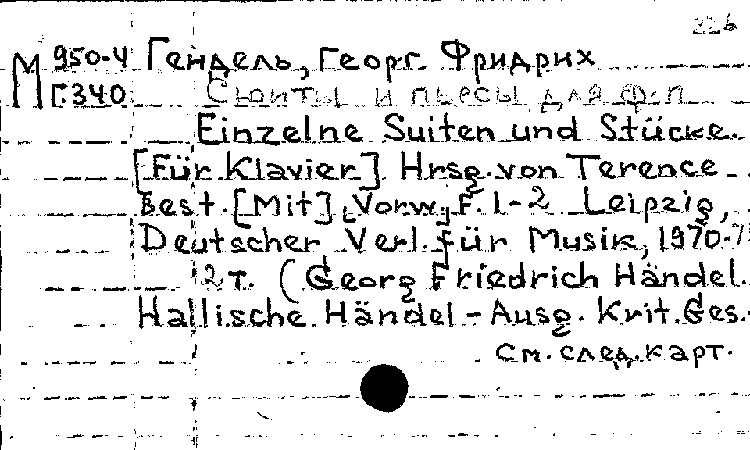 226
М 950-4 Гендель, Георг Фридрих
Г.340 Сюиты и пьесы для ф-п
Einzelne Suiten und Stücke.
[Für Klavier] Hrsg. von Terence
Best. [Mit] Vorw. F. 1-2 Leipzig,
Deutscher Verl. für Musik, 1970-7
2 т. (Georg Friedrich Händel.
Hallische Händel-Ausg. Krit. Ges.-
См. след. карт.